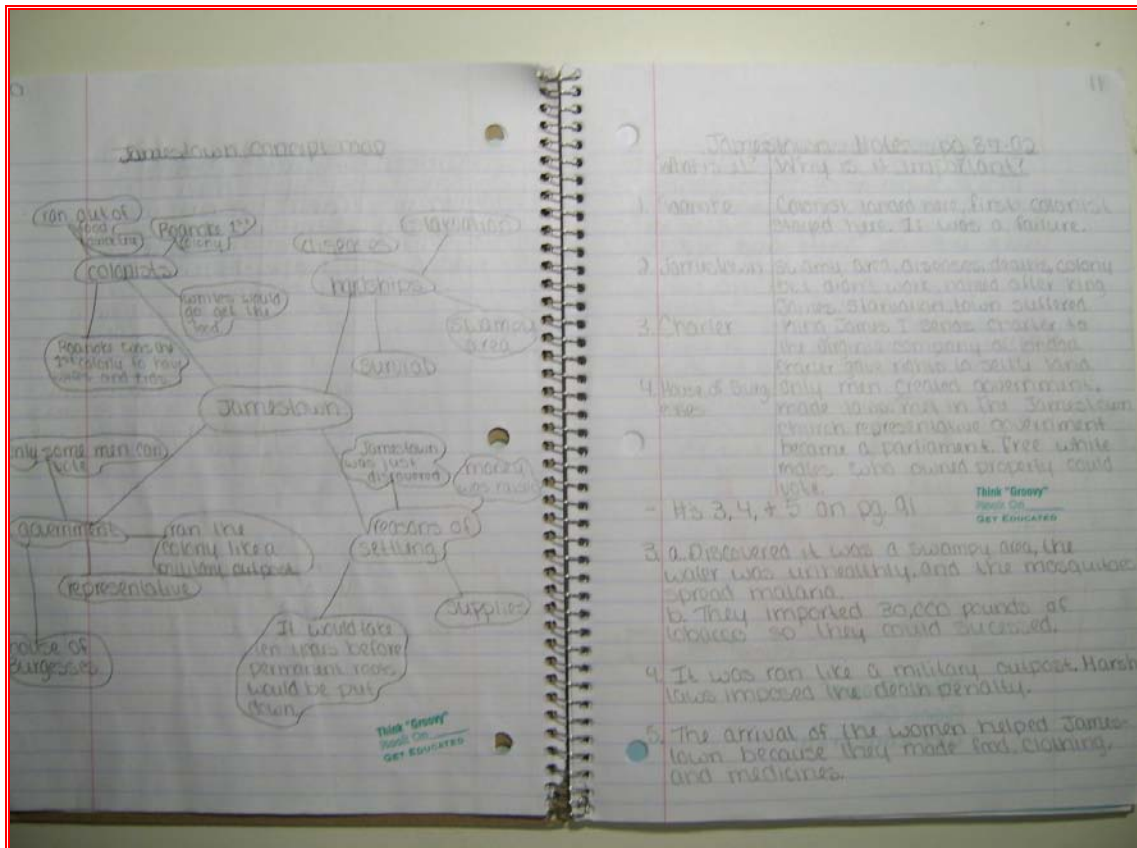 Jamestown Concept map
ran out of
food
Roanoke 1st
colony
colonists
women would
go get the
food
Roanoke was the
1st colony to have
and kids
diseases
starvation
hardships
swampy
area
Jamestown
only some men can
vote
government
ran the
colony like a
military outpost
representative
house of
Burgesses
Jamestown
was just
discovered
money
was raised
reasons of
settling
supplies
It would take
ten years before
permanent roots
would be put
down
Think "Groovy"
GET EDUCATED
11
Jamestown Notes pg. 87-92
What is it? Why is it important?
1. Roanoke Colonist landed here, first colonist
here. It was a failure.
2. Jamestown swamp area, diseases, colony
but didn't work, named after king
James. Starvation, town suffered.
3. Charter King James I sends charter to
the Virginia company of London
gave rights to settle land.
4. House of Burg- only men created government,
esses made laws, met in the Jamestown
church representative government
became a parliament. Free white
males who owned property could
vote.
Think "Groovy"
GET EDUCATED
- #s 3, 4, + 5 on pg. 91
3. a. Discovered it was a swampy area, the
water was unhealthly, and the mosquitoes
spread malaria.
b. They imported 30,000 pounds of
tobacco so they could sucessed.
4. It was ran like a military outpost. Harsh
laws imposed the death penalty.
5. The arrival of the women helped James-
town because they made food, clothing,
and medicines.